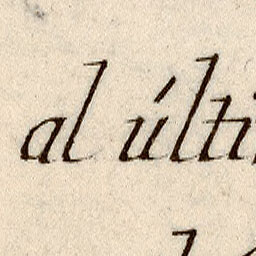 al últi